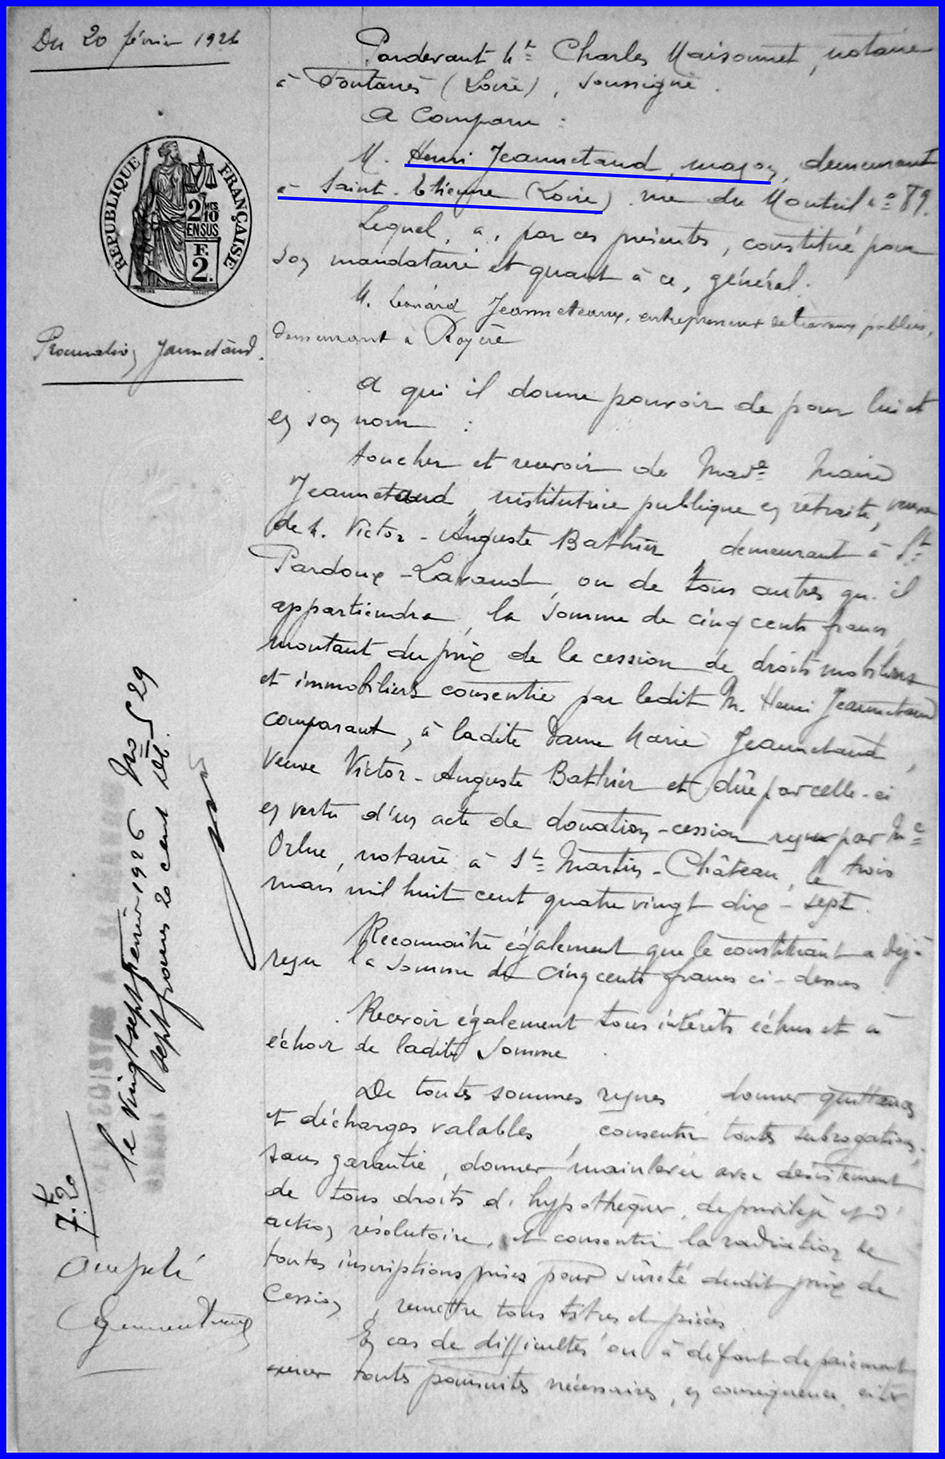 Du 20 février 1926
RÉPUBLIQUE FRANÇAISE
2/10
EN SUS
F.
2.
Procuration Jeannetaud.
Pardevant Me Charles Maisonnet, notaire
à Fontanès (Loire), soussigné.
A Comparu :
M. Henri Jeannetaud, maçon, demeurant
à Saint-Etienne (Loire) rue du Monteil no 89.
Lequel, a, par ces présentes, constitué pour
son mandataire et quant à ce, général.
M. Léonard Jeanneteaux, entrepreneur de travaux publics,
demeurant à Royère
A qui il donne pouvoir de pour lui et
en son nom :
toucher et recevoir de Made Marie
Jeannetaud, institutrice publique en retraite, veuve
de M. Victor-Auguste Bathier, demeurant à St
Pardoux-Lavaud, ou de tous autres qu'il
appartiendra, la somme de cinq cents francs,
montant du prix de la cession de droits mobiliers
et immobiliers consentie par ledit M. Henri Jeannetaud
comparant, à ladite Dame Marie Jeannetaud,
veuve Victor-Auguste Bathier et dûe par celle-ci
en vertu d'un acte de donation-cession reçu par Me
notaire à St Martin-Château, le trois
mars mil huit cent quatre vingt dix-sept.
Reconnaître également que le constituant a déjà
reçu la somme de cinq cents francs ci-dessus.
Recevoir également tous intérêts échus et à
échoir de ladite somme.
De toutes sommes reçues donner quittances
et décharges valables, consentir toutes subrogations,
sans garantie, donner mainlevée avec désistement
de tous droits d'hypothèque, de privilège et d'
action résolutoire, et consentir la radiation de
toutes inscriptions prises pour sûreté dudit prix de
Cession, remettre tous titres et pièces.
En cas de difficultés ou à défaut de paiement
exercer toutes poursuites nécessaires, en conséquence, citer
le vingt sept février 1926 No 529
sept francs 20 cent
7f.20